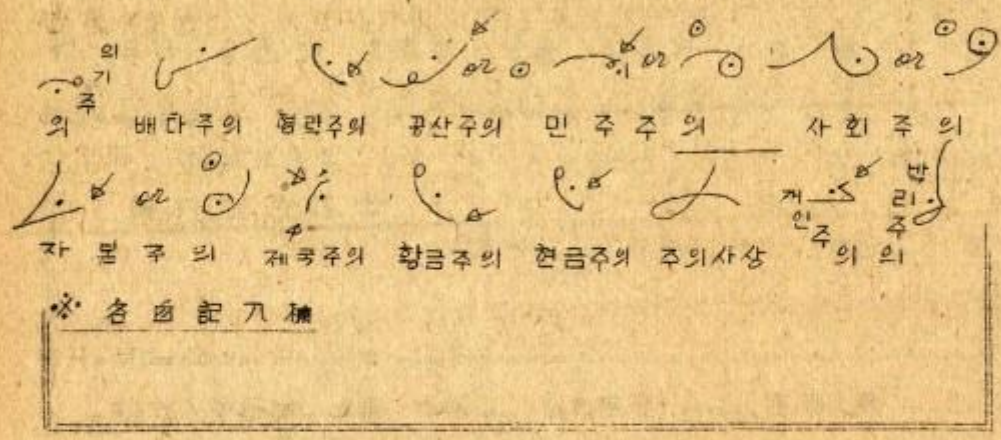 의기주의 배타주의 협력주의 공산주의 민주주의 사회주의
or or or
자본주의 제국주의 황금주의 현금주의 주의사상 개인주의 박리주의
or
※ 各自記入欄